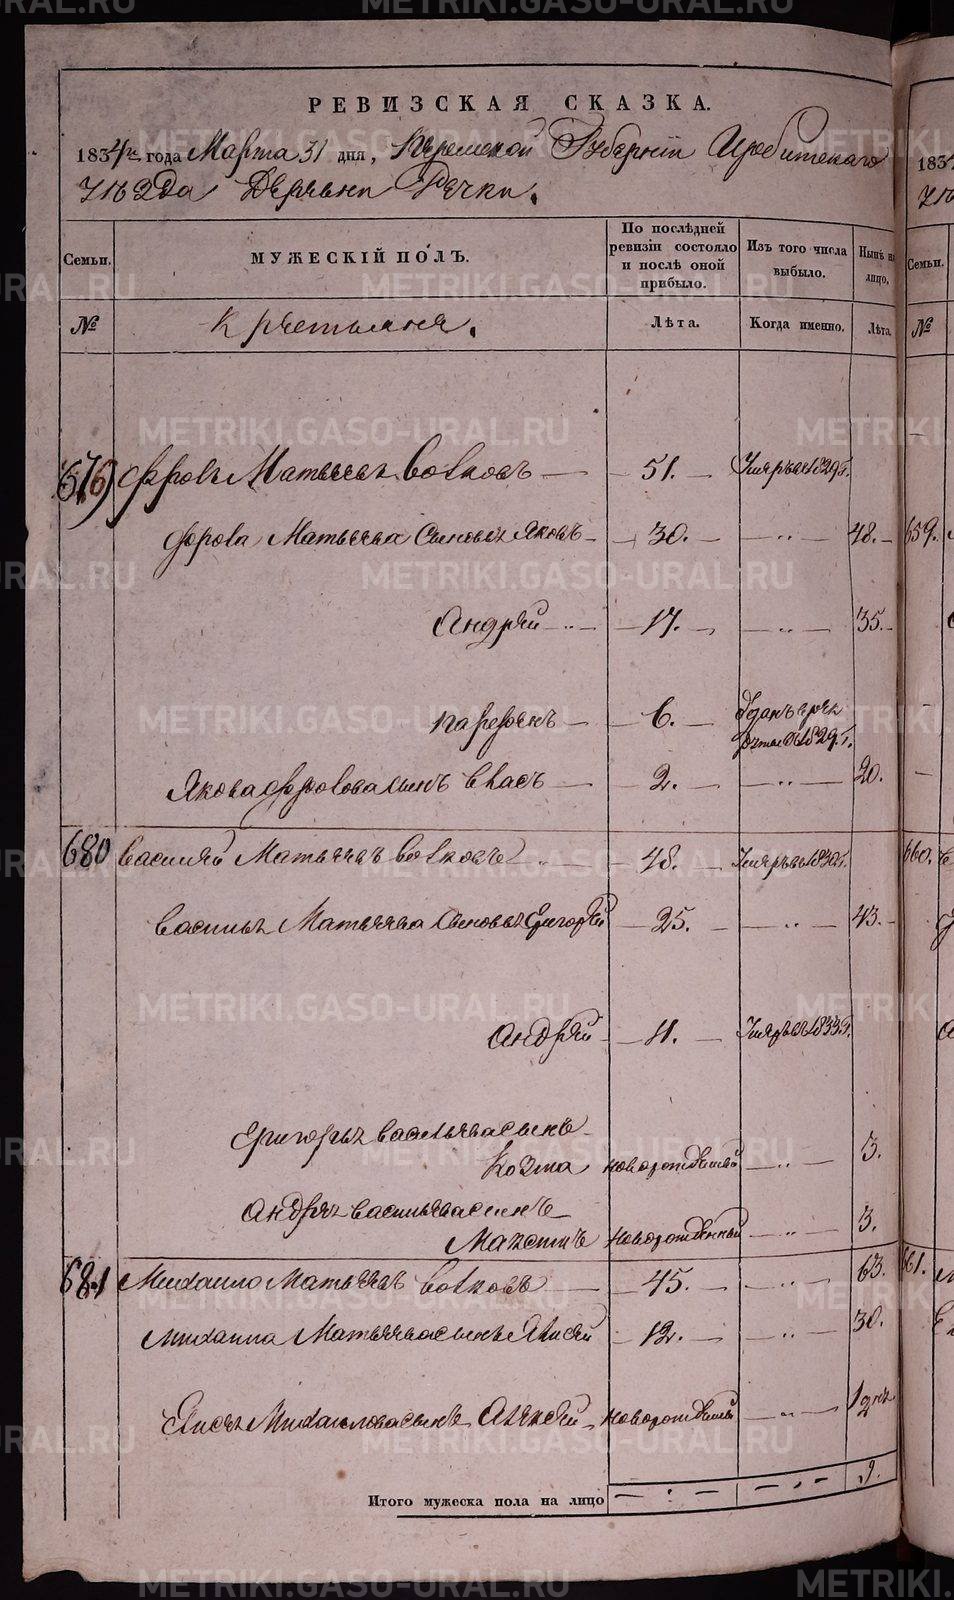 РЕВИЗСКАЯ СКАЗКА.
1834го года Марта 31 дня, Пермской Губернiи Ирбитскаго
Уѣзда Деревни Речки.
Семьи. МУЖЕСКIЙ ПОЛЪ. По послѣдней ревизiи состояло и послѣ оной прибыло. Изъ того числа выбыло. Нынѣ на лицо.
№ Крестьяне. Лѣта. Когда именно. Лѣта.
Фролъ Матвеевъ Волковъ — 51. — Умеръ въ 1829 г.
Фрола Матвеева Сыновья Яковъ — 30. — „ — 48.
Андрей — „ — 17. — „ — 35.
Парфенъ — 6. — 1829. г.
Якова Фролова сынъ Власъ — 2. — „ — 20.
680 Василей Матвеевъ Волковъ — 48. — Умеръ въ 1830 г.
Василья Матвеева Сыновья Григорей — 25. — „ — 43.
Андрей — 11. — Умеръ въ 1833 г.
Григорья Васильева сынъ
Козма новорожденный — „ — 3.
Андрея Васильева сынъ
новорожденный — „ — 3.
681 Михаило Матвеевъ Волковъ — 45. — „ — 63.
Михаила Матвеева сынъ Елисей — 12. — „ — 30.
Елисея Михаилова сынъ Алексей — новорожденный — „ — 1
Итого мужеска пола на лицо — : — — „ — 9.